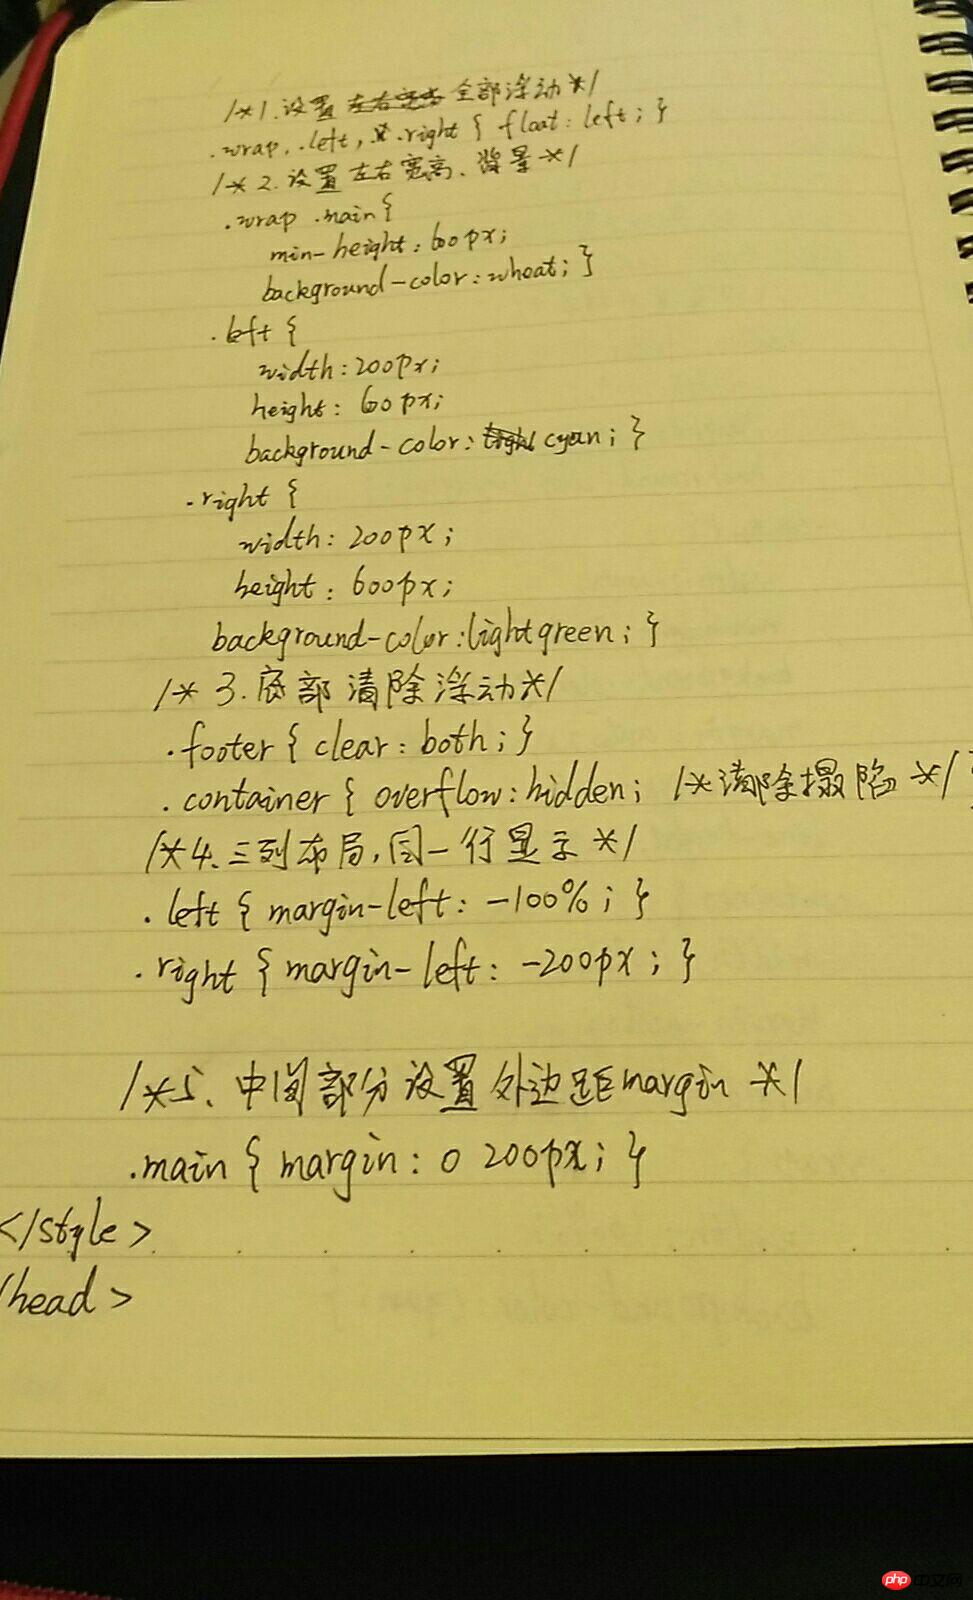 /*1.设置 全部浮动*/
.wrap, .left, .right { float: left; }
/*2.设置左右宽高、背景*/
.wrap .main{
min-height: 600px;
background-color: wheat; }
.left {
width: 200px;
height: 60px;
background-color: cyan; }
.right {
width: 200px;
height: 600px;
background-color: lightgreen; }
/*3.底部清除浮动*/
.footer { clear: both; }
.container { overflow: hidden; /*清除塌陷*/ }
/*4.三列布局,同一行显示*/
.left { margin-left: -100%; }
.right { margin-left: -200px; }
/*5、中间部分设置外边距margin*/
.main { margin: 0 200px; }
</style>
/head>
php 中文网